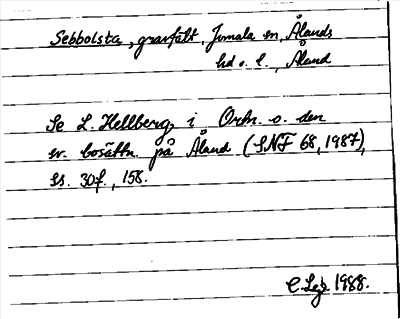 Sebbolsta, gravfält, Jomala sn, Ålands
hd o. l., Åland
Se L. Hellberg i Ortn. o. den
sv. bosättn. på Åland (SNF 68, 1987),
ss. 30f., 158.
1988.